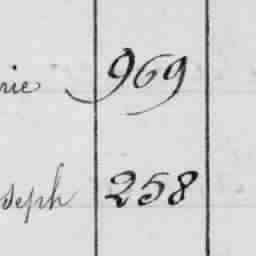 rie 969
seph 258